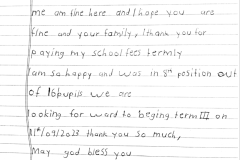 me am fine here and I hope you are
fine and your family, I thank you for
paying my school fees termly
I am so happy and was in 8th position out
of 16 pupils we are
looking for word to beging term III on
11st/09/2023 thank you so much,
May god bless you